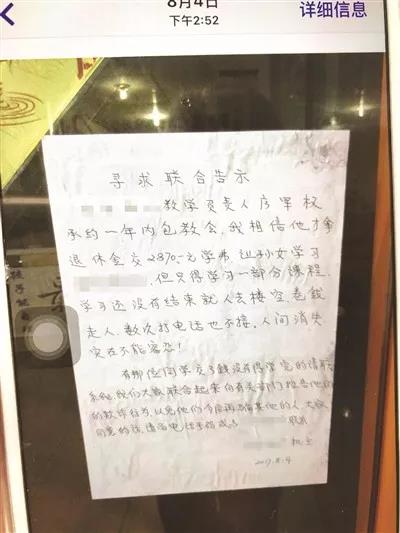 8月4日
下午2:52
详细信息
寻求联合告示
教学负责人房军权
承约一年内包教会,我相信他才拿
退休金交2870.-元学费 让孙女学习
但只得学习一部分课程,
学习还没有结束就人去楼空卷钱
走人.数次打电话也不接,人间消失
实在不能容忍!
有那位同学交了钱没有得学完的请联
系我,我们大家联合起来向有关部门控告他们
的欺诈行为,以免他们今后再
其他的人.大家
同意的话,请
电话
手机
2017.8.4